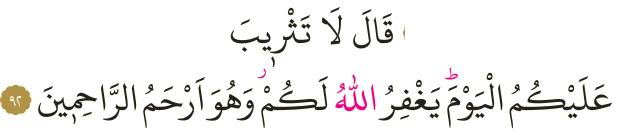 قَالَ لَا تَثْرٖيبَ
عَلَيْكُمُ الْيَوْمَؕ يَغْفِرُ اللّٰهُ لَكُمْؗ وَهُوَ اَرْحَمُ الرَّاحِمٖينَ ﴿٩٢﴾